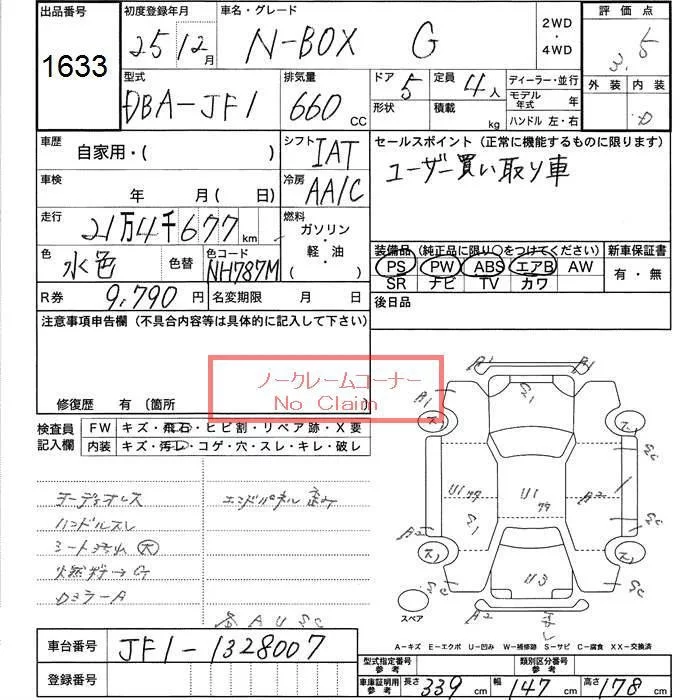 出品番号 初度登録年月 車名・グレード 評価点
1633 25 12月 N-BOX G 2WD・4WD 3.5
型式 排気量 ドア 定員 ディーラー・並行 外装 内装
DBA-JF1 660 CC 5 4人 モデル年式 年 D
形状 積載 kg ハンドル 左・右
車歴 自家用・( ) シフト IAT セールスポイント(正常に機能するものに限ります)
車検 年 月( 日) 冷房 AAC ユーザー買い取り車
走行 21万4千677km 燃料 ガソリン・軽・油( )
装備品(純正品に限り○をつけてください) 新車保証書
色 水色 色替 色コード NH787M PS PW ABS エアB AW 有・無
SR ナビ TV カワ
R券 9,790円 名変期限 月 日 後日品
注意事項申告欄(不具合内容等は具体的に記入して下さい)
ノークレームコーナー
No Claim
修復歴 有(箇所
検査員記入欄 FW キズ・飛石・ヒビ割・リペア跡・X要
内装 キズ・汚レ・コゲ・穴・スレ・キレ・破レ
オーディオレス エンドパネル歪み
ハンドルスレ
シート汚れ 大
燃料 → G
Dミラー A
A1 A1 G21
U1 U1 S1 A2 A2 Sc
U3 A2 Sc
スペア
A U SC
A-キズ E-エクボ U-凹み W-補修跡 S-サビ C-腐食 XX-交換済
車台番号 JF1-1328007
登録番号
型式指定番号 参考 類別区分番号 参考
車庫証明用 参考 長さ 339cm 幅 147cm 高さ 178cm